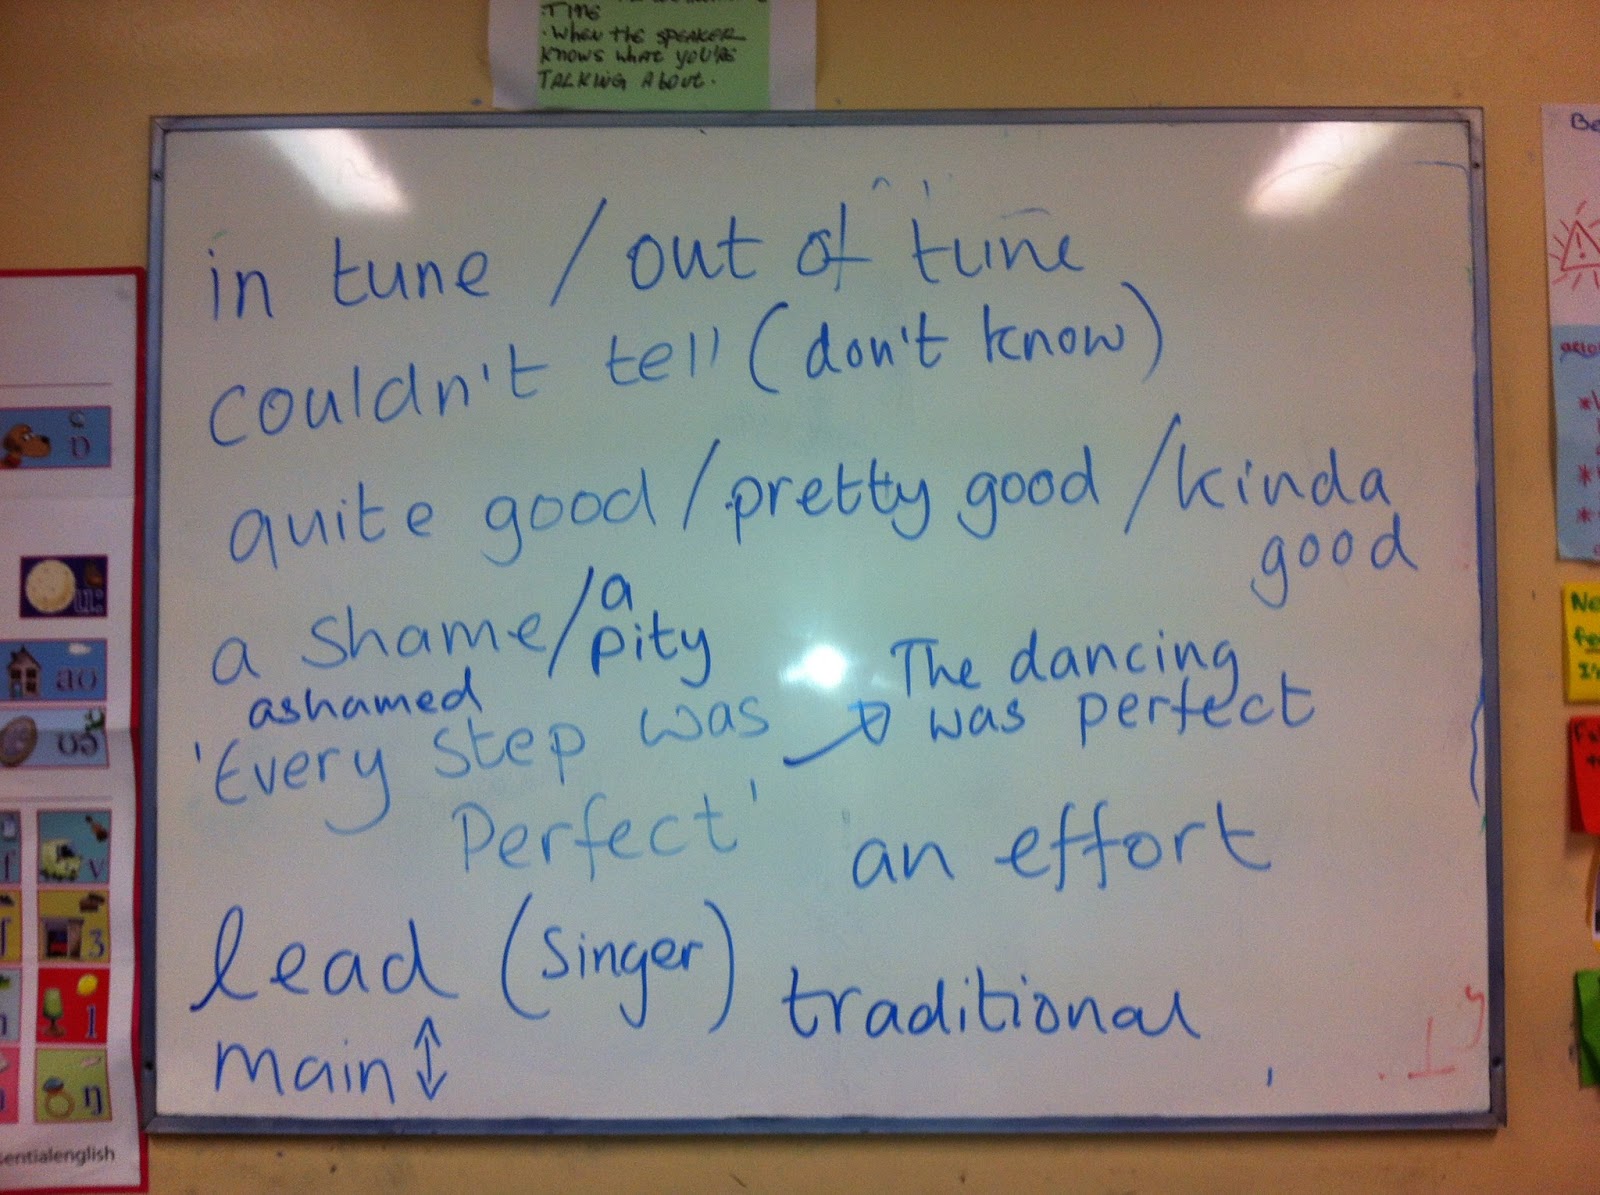 TIME
· When the speaker
knows what you're
talking about.
in tune / out of tune
couldn't tell (don't know)
quite good / pretty good / kinda
good
a shame / a
pity
ashamed
The dancing
was perfect
'Every step was
Perfect'
an effort
lead (singer)
traditional
main ↕
Be
ɒ
u:
aʊ
ʊə
f
v
ʃ
ʒ
l
ŋ
entialenglish